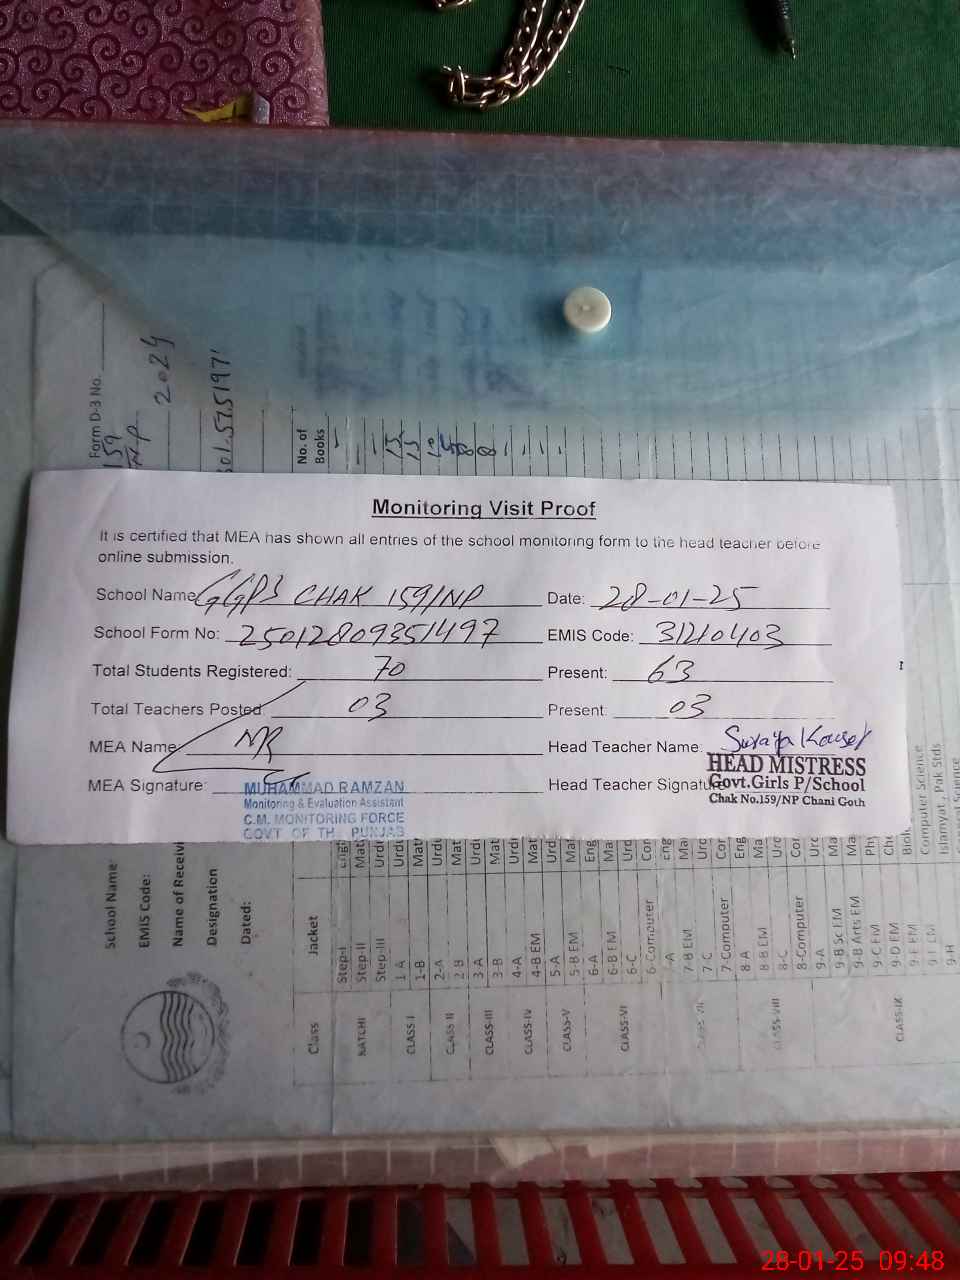 Form D-3 No.
159
NP
2024
No. of
Books
Monitoring Visit Proof
It is certified that MEA has shown all entries of the school monitoring form to the head teacher before
online submission.
School Name GGPS CHAK 159/NP Date: 28-01-25
School Form No: 25012809351497 EMIS Code: 31210403
Total Students Registered: 70 Present: 63
Total Teachers Posted: 03 Present 03
MEA Name: MR Head Teacher Name: Suraya Kousar
MEA Signature: Head Teacher Signature
MUHAMMAD RAMZAN
Monitoring & Evaluation Assistant
C.M. MONITORING FORCE
GOVT OF THE PUNJAB
HEAD MISTRESS
Govt.Girls P/School
Chak No.159/NP Chani Goth
School Name:
EMIS Code:
Name of Receivi
Designation
Dated:
Class Jacket
KATCHI Step-I
Step-II
Step-III
CLASS I 1-A
1-B
CLASS II 2-A
2-B
CLASS-III 3-A
3-B
CLASS-IV 4-A
4-B EM
CLASS-V 5-A
5-B EM
CLASS-VI 6-A
6-B EM
6-C
6-Computer
CLASS-VII 7-A
7-B EM
7-C
7-Computer
CLASS-VIII 8-A
8-B EM
8-C
8-Computer
CLASS-IX 9-A
9-B Sc EM
9-B Arts EM
9-C EM
9-D EM
9-H
Computer Science
Islamyat, Pak Stds
General Science
28-01-25 09:48